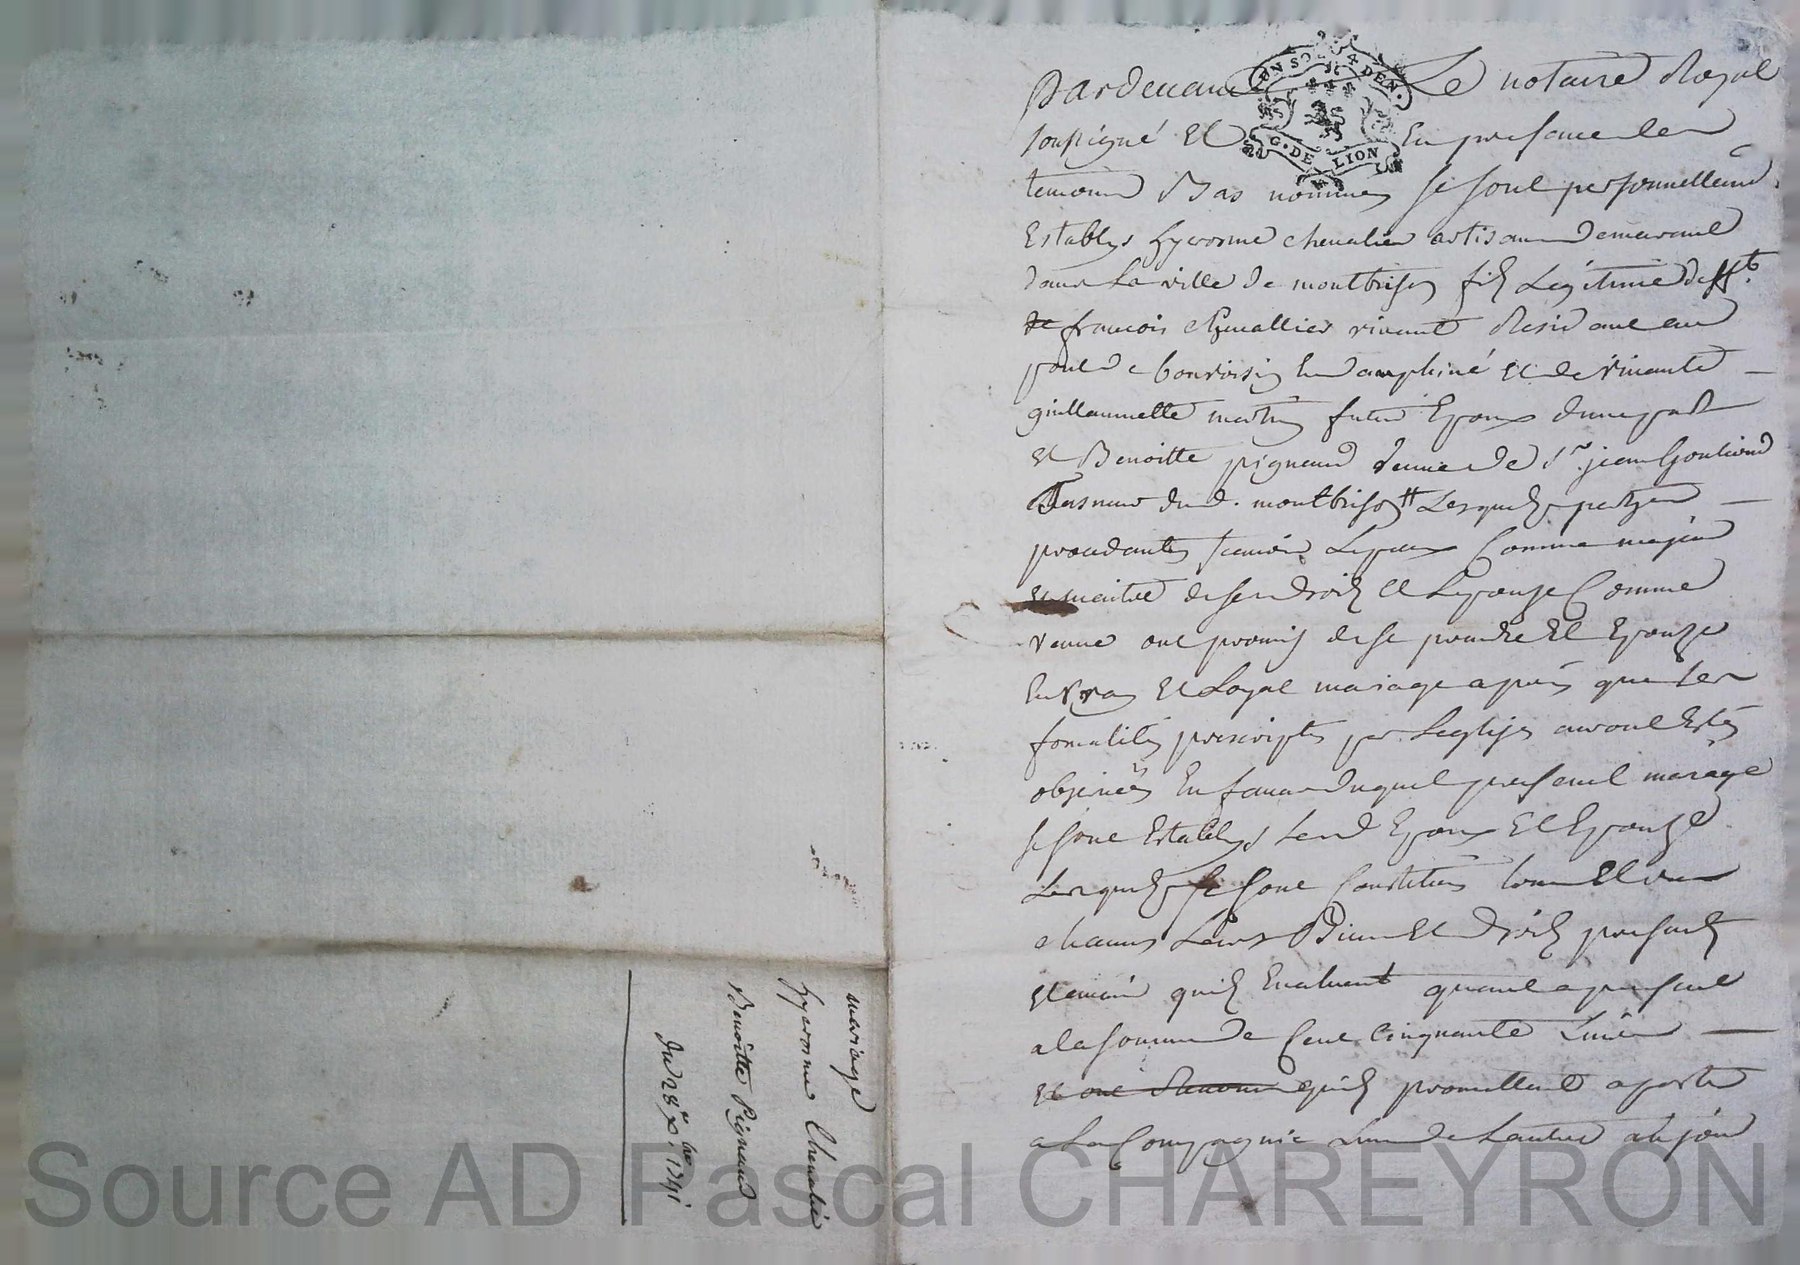 mariage
hyerosme Chevalier
Benoitte Pignaud
du 28e xbre 1741
UN SOL 4 DEN.
G. DE LION
Pardeuant Le notaire Royal
soussigné Et En presance des
temoins Bas nommes se sont personnellemt
Establys hyerosme chevalier artisan demeurant
dans La ville de montbrison fils Legitime defft
de francois chevallier vivant Residant au
pont de bonvoisin En dauphiné Et de vivante
guillaumette martin futur Epoux d'une part
Et Benoitte pignaud veuve de Sr jean
du d. montbrison Lesquels partyes
procedantes scavoir Lepoux Comme majeur
Et maitre de ses droits Et Lepouse Comme
veuve ont promis de se prendre Et Epouser
En vray Et Loyal mariage apres que les
formalités prescriptes par Leglise auront Estés
observées En faveur duquel present mariage
se sont Establys Lesd Epoux Et Epouse
Lesquels se sont Constitués tous Et un
chacuns Leurs Biens Et droits presents
Et avenir quils Evaluent quant a present
a la somme de Cent Cinquante Livres
Et ont quils promettent aporter
a La Compagnie Lun de Lautre au jour
Source AD Pascal CHAREYRON